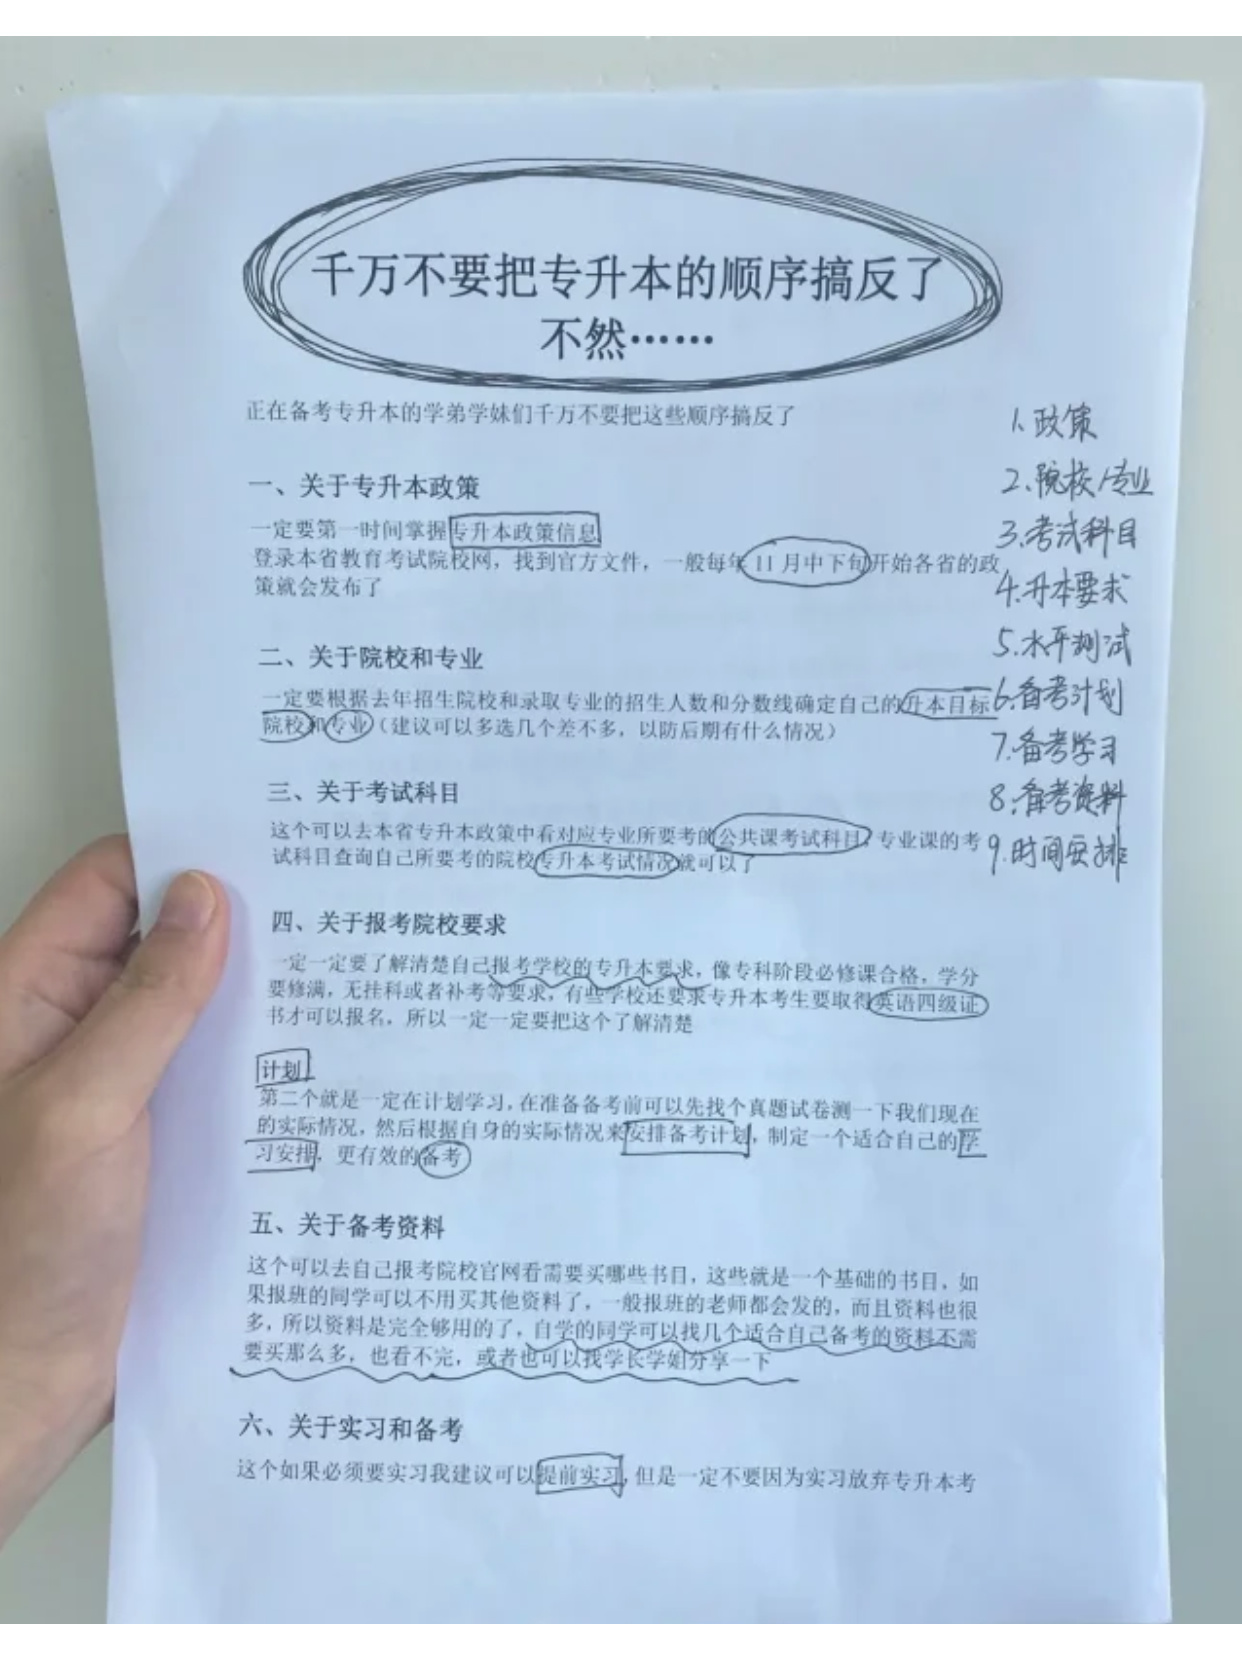 千万不要把专升本的顺序搞反了
不然……
正在备考专升本的学弟学妹们千万不要把这些顺序搞反了
一、关于专升本政策
一定要第一时间掌握专升本政策信息
登录本省教育考试院校网，找到官方文件，一般每年 11 月中下旬开始各省的政
策就会发布了
二、关于院校和专业
一定要根据去年招生院校和录取专业的招生人数和分数线确定自己的升本目标
院校和专业（建议可以多选几个差不多，以防后期有什么情况）
三、关于考试科目
这个可以去本省专升本政策中看对应专业所要考的公共课考试科目，专业课的考
试科目查询自己所要考的院校专升本考试情况就可以了
四、关于报考院校要求
一定一定要了解清楚自己报考学校的专升本要求，像专科阶段必修课合格，学分
要修满，无挂科或者补考等要求，有些学校还要求专升本考生要取得英语四级证
书才可以报名，所以一定一定要把这个了解清楚
计划
第二个就是一定在计划学习，在准备备考前可以先找个真题试卷测一下我们现在
的实际情况，然后根据自身的实际情况来安排备考计划，制定一个适合自己的学
习安排，更有效的备考
五、关于备考资料
这个可以去自己报考院校官网看需要买哪些书目，这些就是一个基础的书目，如
果报班的同学可以不用买其他资料了，一般报班的老师都会发的，而且资料也很
多，所以资料是完全够用的了，自学的同学可以找几个适合自己备考的资料不需
要买那么多，也看不完，或者也可以找学长学姐分享一下
六、关于实习和备考
这个如果必须要实习我建议可以提前实习，但是一定不要因为实习放弃专升本考
1、政策
2、院校/专业
3、考试科目
4.升本要求
5.水平测试
6.备考计划
7.备考学习
8.备考资料
9.时间安排